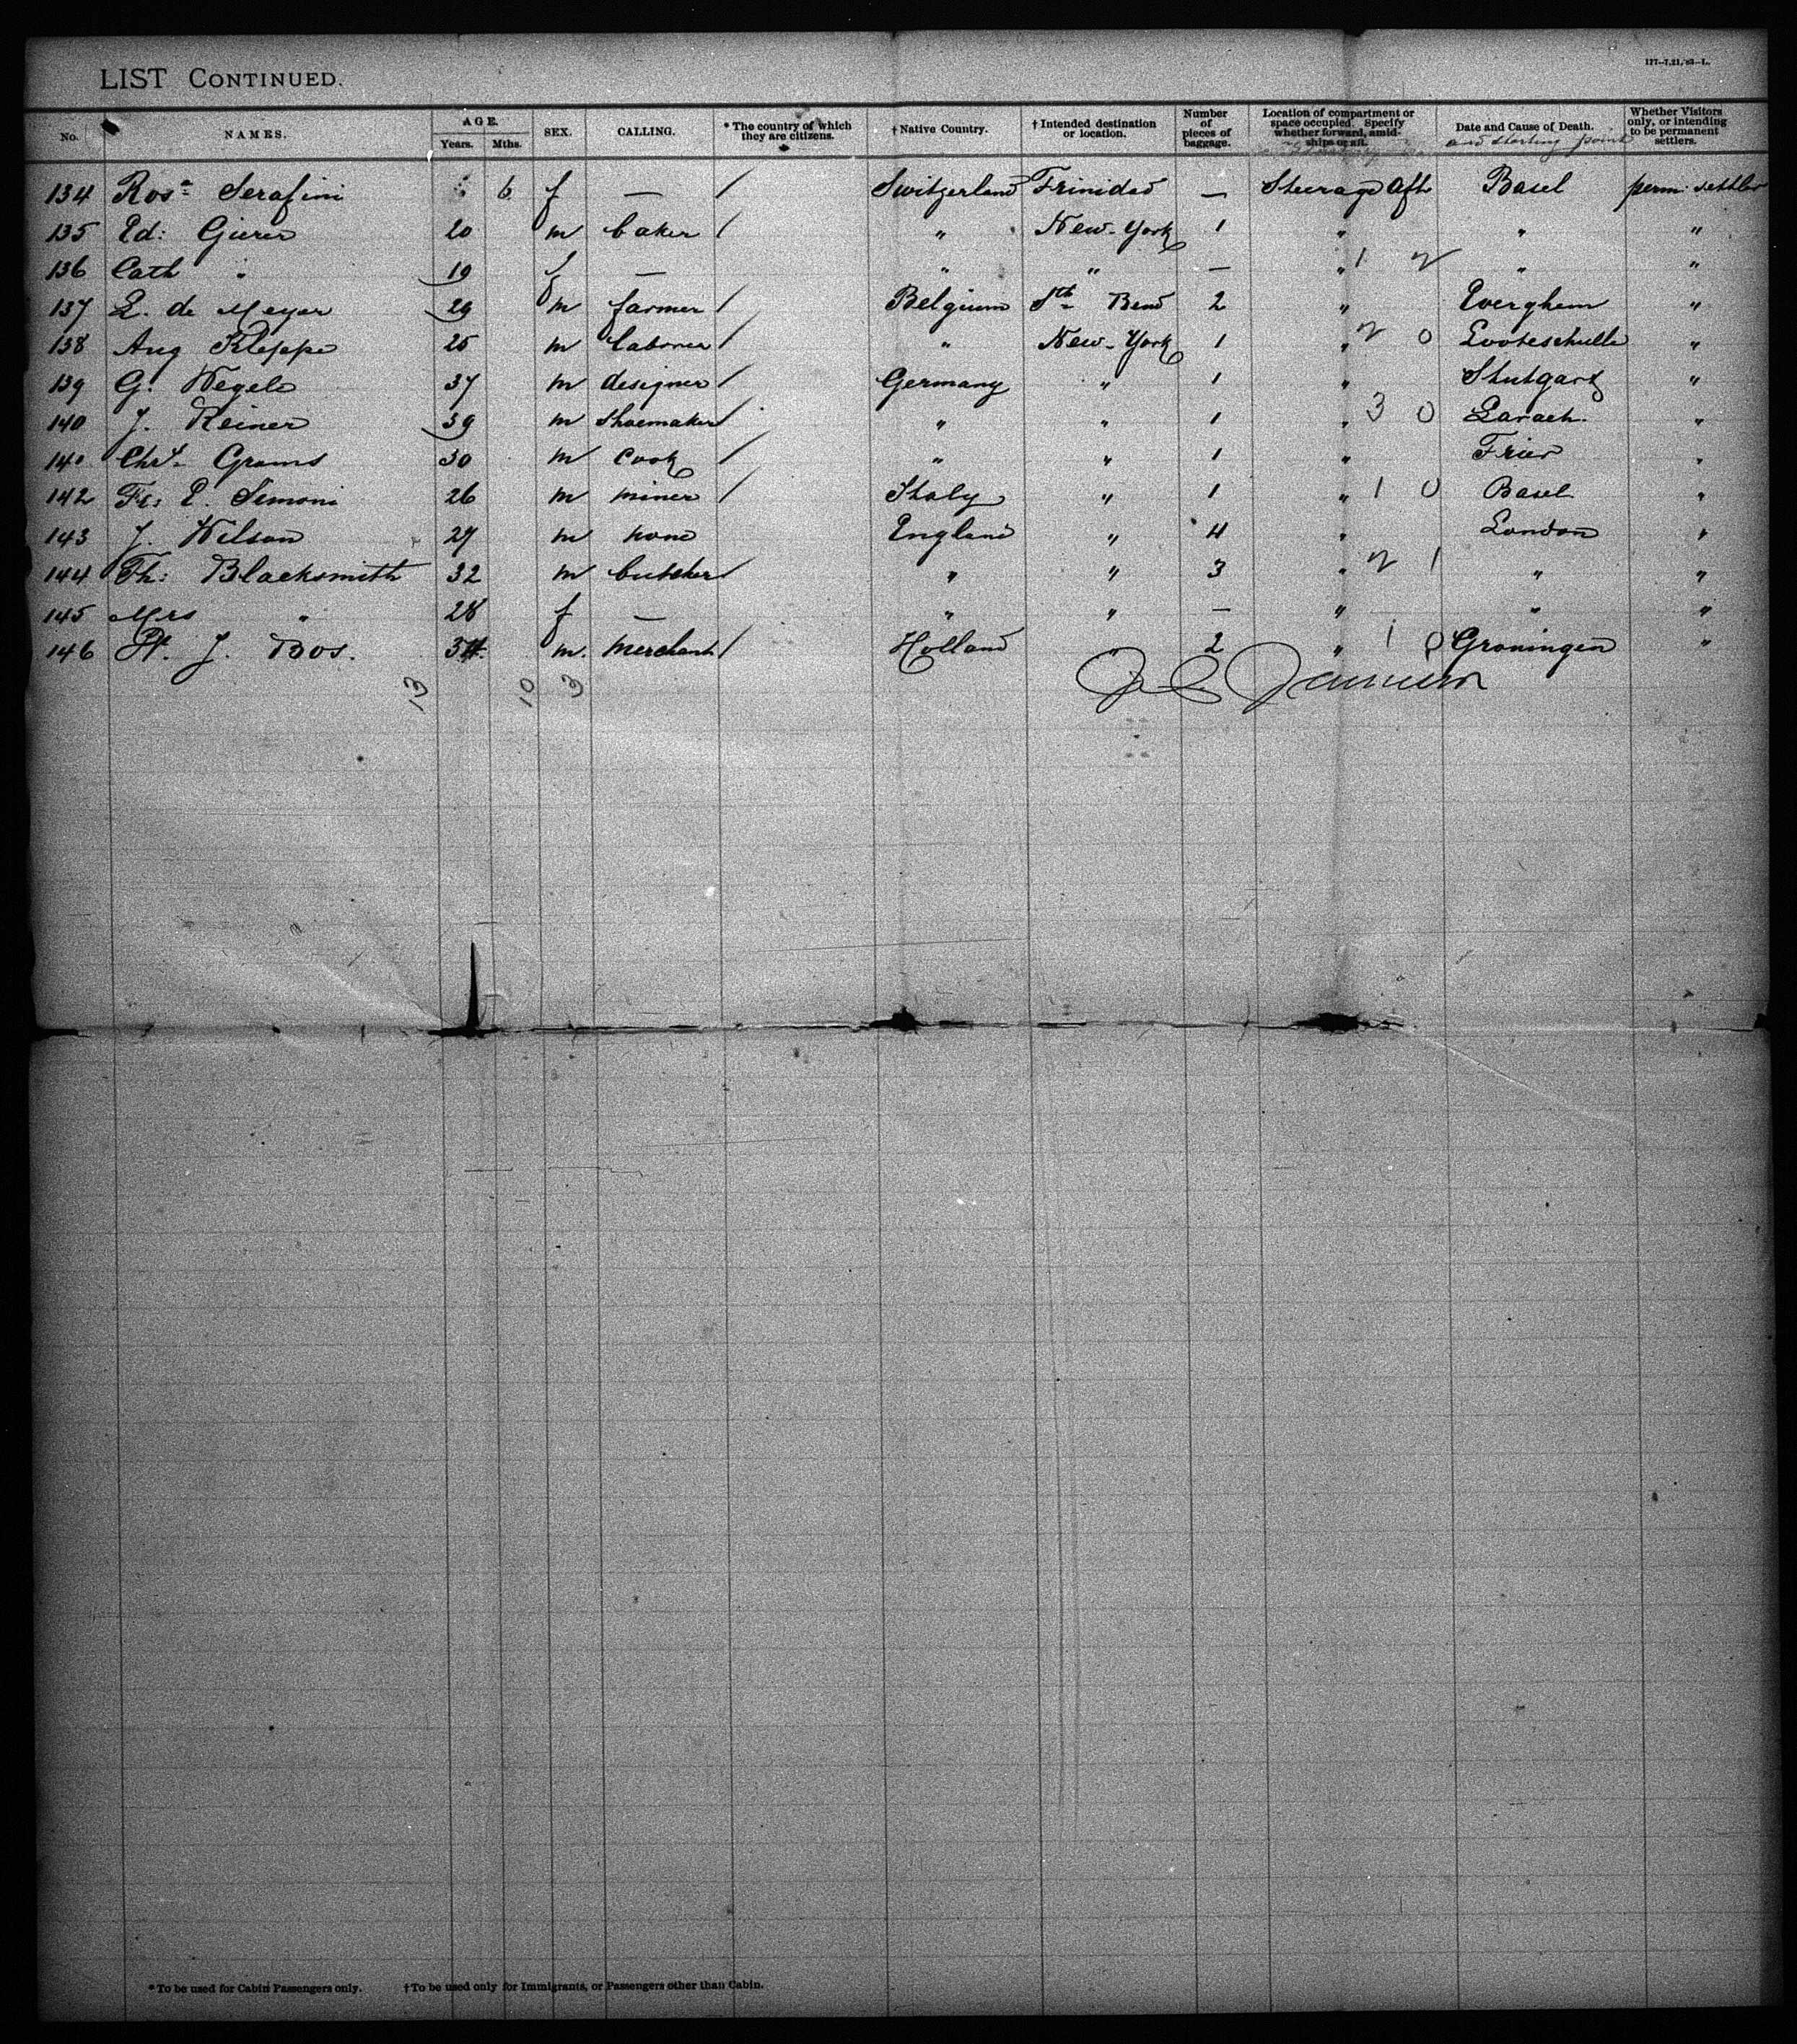 177-7,21,'93-L.
LIST CONTINUED.
No. NAMES. AGE. Years. Mths. SEX. CALLING. * The country of which they are citizens. † Native Country. † Intended destination or location. Number of pieces of baggage. Location of compartment or space occupied. Specify whether forward, amidships or aft. Date and Cause of Death. and starting point Whether Visitors only, or intending to be permanent settlers.
134 Rosa Serafini 6 f — / Switzerland Trinidad — Steerage Aft Basel perm: settler
135 Ed: Gierer 20 m baker / " New-York 1 " " "
136 Cath " 19 f — " " — " 1 2 " "
137 L. de Meyer 29 m farmer / Belgium Sth Bend 2 " Everghem "
138 Aug Kleppe 25 m laborer / " New-York 1 " 2 0 "
139 G. Wegele 37 m designer / Germany " 1 " Stutgart "
140 J. Reiner 39 m shoemaker / " " 1 " 3 0 "
141 Chr. Grams 30 m cook / " " 1 " Trier "
142 Fr: E. Simoni 26 m miner / Italy " 1 " 1 0 Basel "
143 J. Wilson 27 m none England " 4 " London "
144 Th: Blacksmith 32 m butcher / " " 3 " 2 1 " "
145 Mrs " 28 f — " " — " " "
146 J. Bos. 34 m. merchant / Holland " 2 " 1 0 Groningen "
13 10 3
*To be used for Cabin Passengers only. †To be used only for Immigrants, or Passengers other than Cabin.